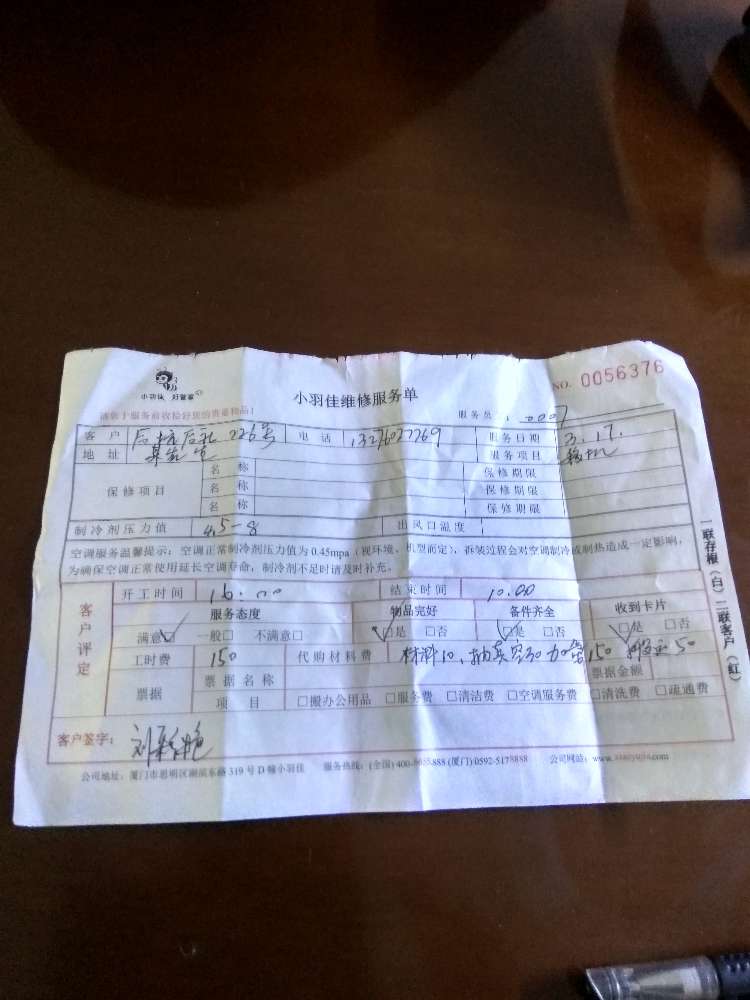 小羽佳 好管家
小羽佳维修服务单
NO. 0056376
请您于服务前收拾好您的贵重物品!
服务员: 0007
客户 后坑后社 226号 电话 服务日期 3.17.
地址 服务项目 移机
保修项目 名称 保修期限
名称 保修期限
名称 保修期限
制冷剂压力值 4.5-8 出风口温度
空调服务温馨提示:空调正常制冷剂压力值为0.45mpa(视环境、机型而定),拆装过程会对空调制冷或制热造成一定影响,
为确保空调正常使用延长空调寿命,制冷剂不足时请及时补充。
一联存根(白)二联客户(红)
客户评定
开工时间 16.00 结束时间 10.00
服务态度 物品完好 备件齐全 收到卡片
满意□ 一般□ 不满意□ □是 □否 □是 □否 □是 □否
工时费 150 代购材料费 材料10、抽真空30 加 150 50
票据 票据名称 票据金额
项目 □搬办公用品 □服务费 □清洁费 □空调服务费 □清洗费 □疏通费
客户签字:
公司地址:厦门市思明区湖滨东路319号D幢小羽佳 服务热线:(全国)400-8655888 (厦门)0592-5178888 公司网站:www.xiaoyujia.com